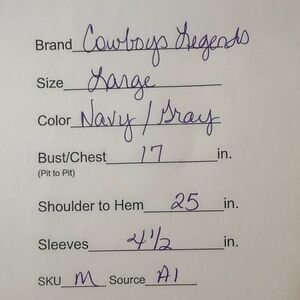 Brand Cowboys Legends
Size Large
Color Navy / Gray
Bust/Chest 17 in.
(Pit to Pit)
Shoulder to Hem 25 in.
Sleeves 4 1/2 in.
SKU M Source A1